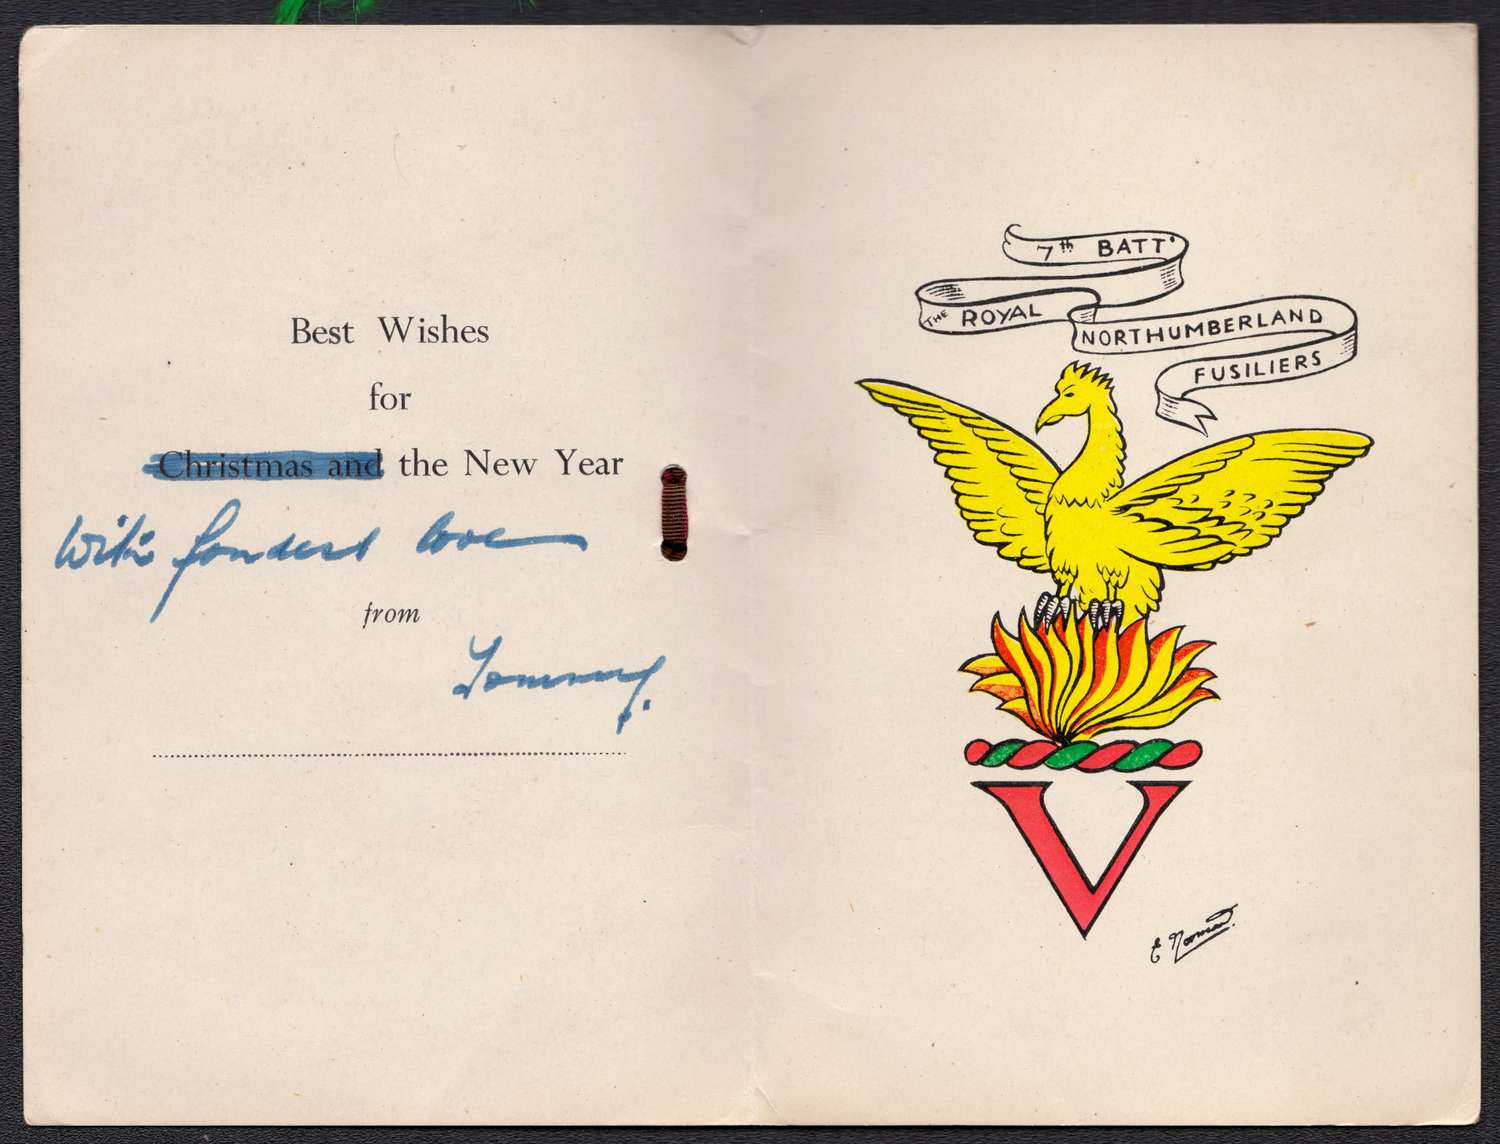 Best Wishes
for
Christmas and the New Year
With fondest love
from
Tommy.
7th BATT.
THE ROYAL
NORTHUMBERLAND
FUSILIERS
V
E Norman.